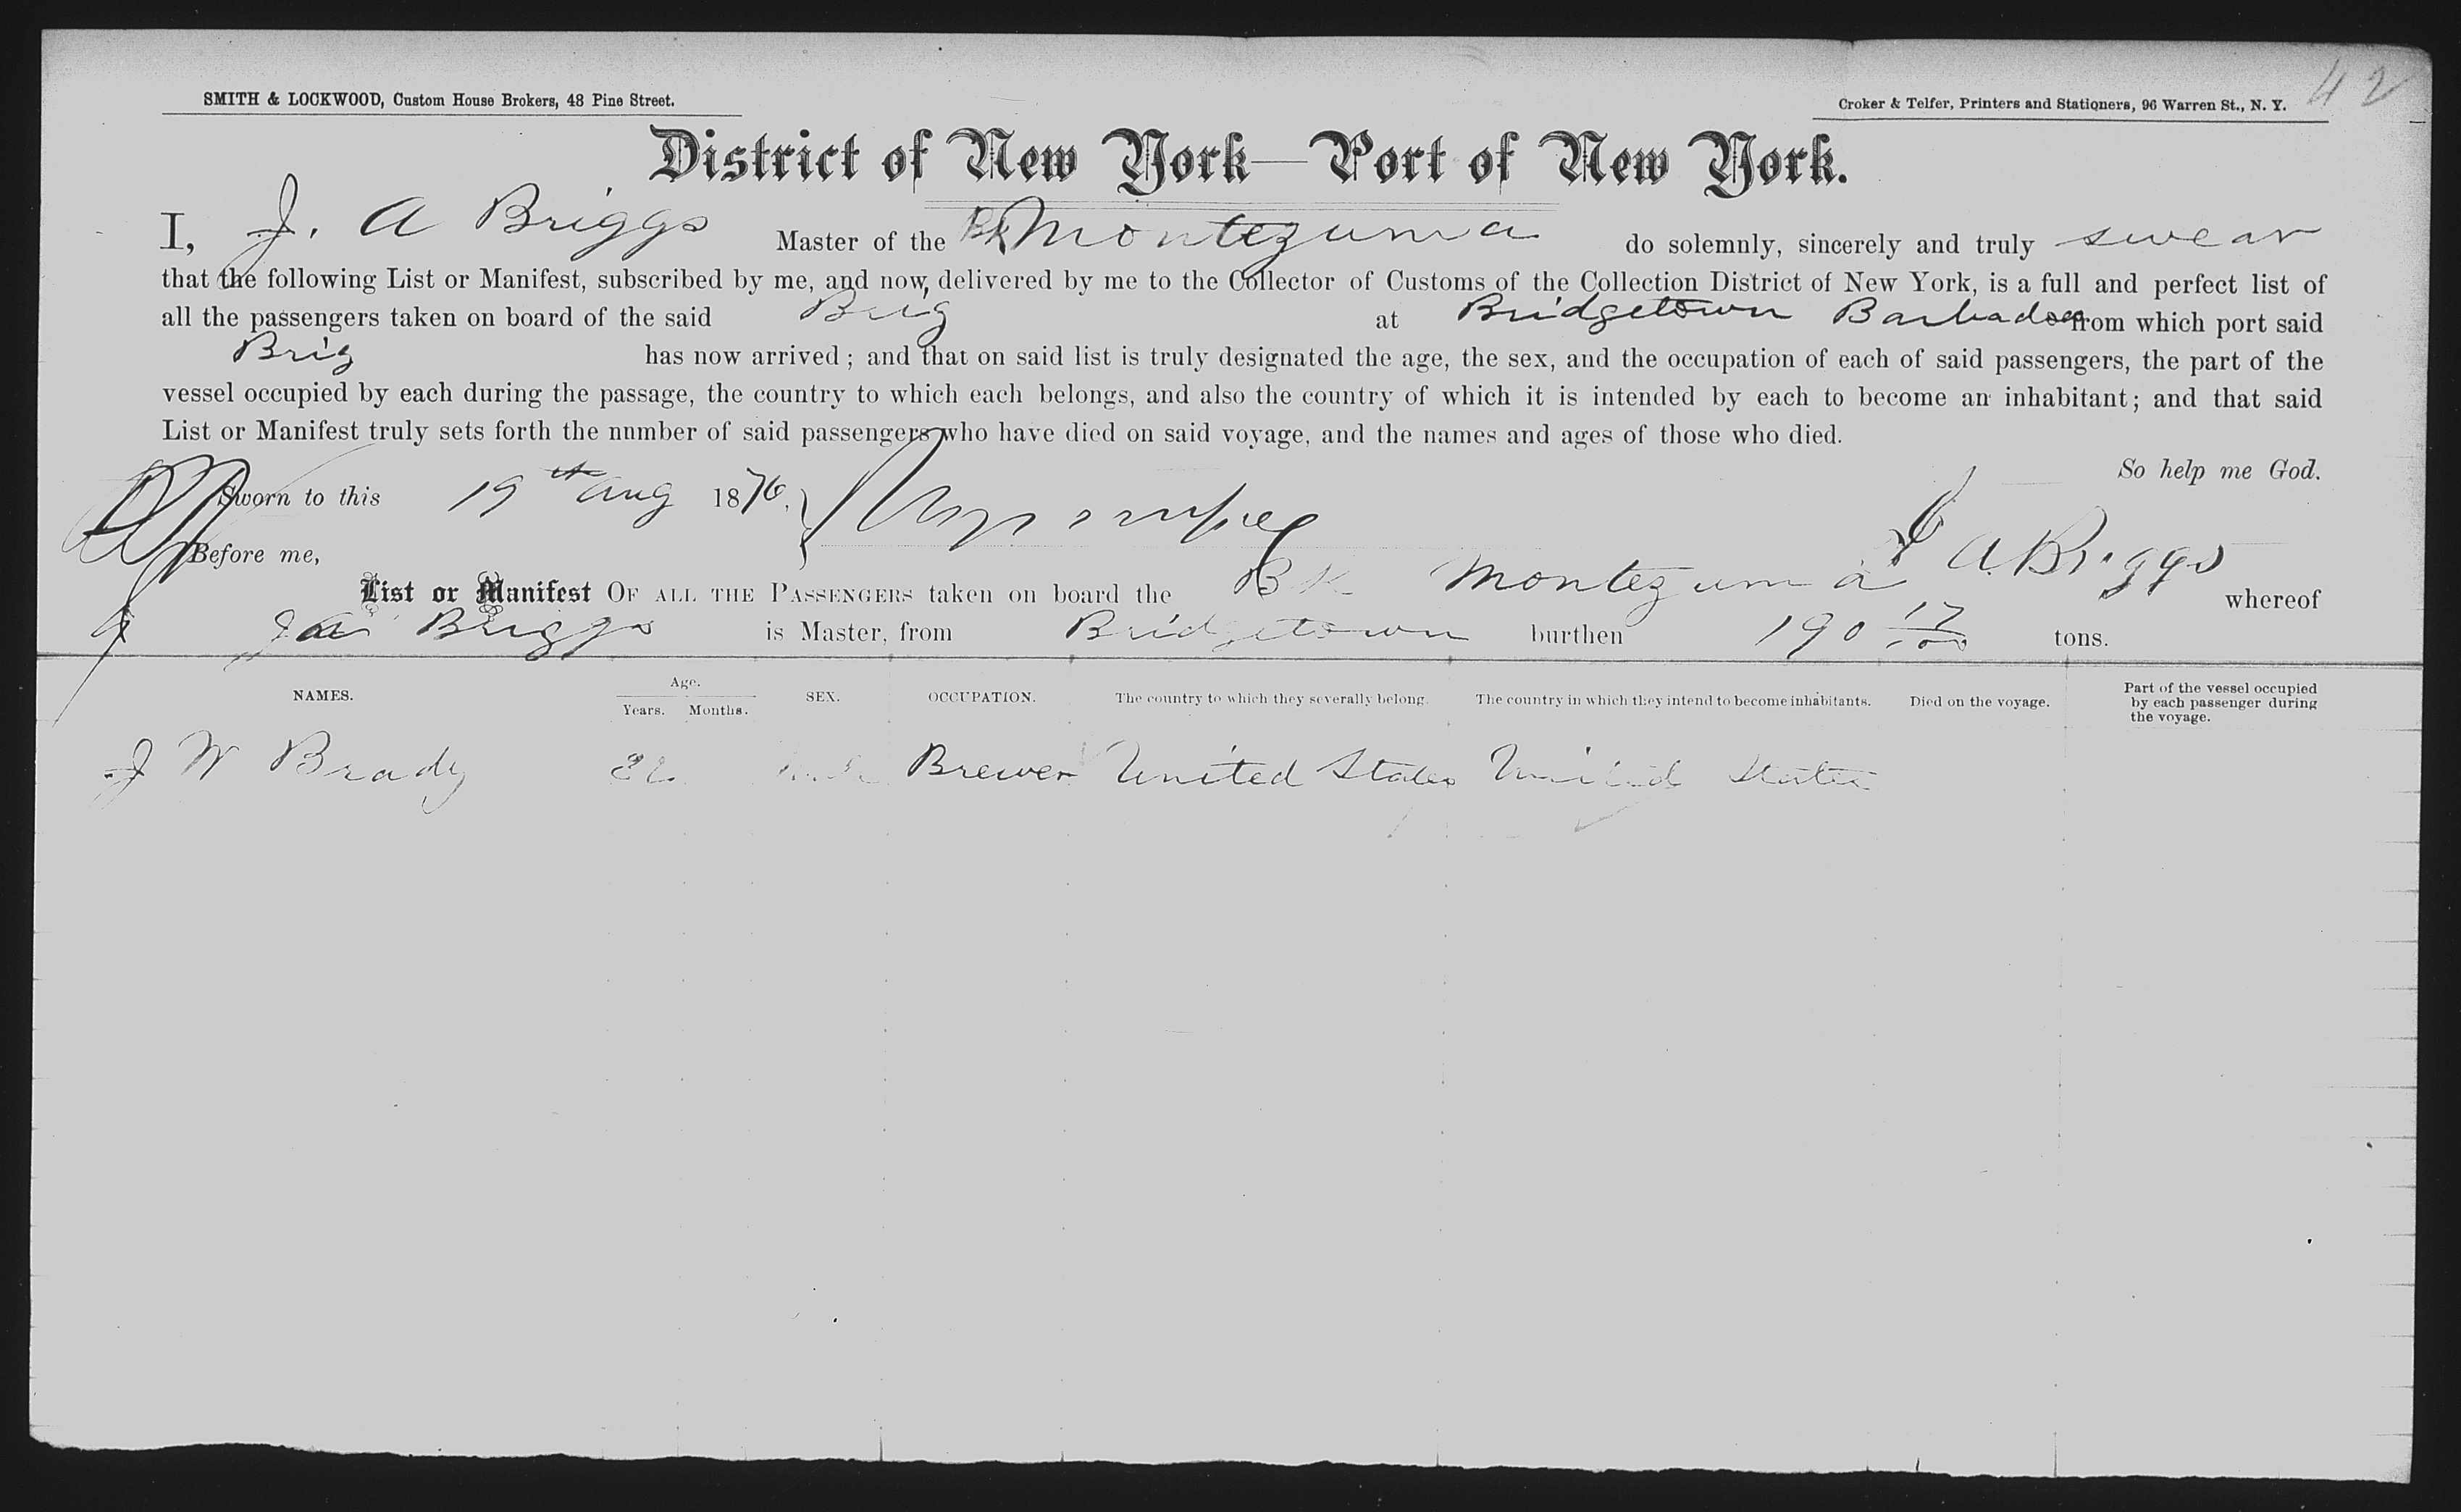 42
SMITH & LOCKWOOD, Custom House Brokers, 48 Pine Street.
Croker & Telfer, Printers and Stationers, 96 Warren St., N. Y.
District of New York—Port of New York.
I, J. A Briggs Master of the Bk Montezuma do solemnly, sincerely and truly swear
that the following List or Manifest, subscribed by me, and now delivered by me to the Collector of Customs of the Collection District of New York, is a full and perfect list of
all the passengers taken on board of the said Brig at Bridgetown Barbados from which port said
Brig has now arrived; and that on said list is truly designated the age, the sex, and the occupation of each of said passengers, the part of the
vessel occupied by each during the passage, the country to which each belongs, and also the country of which it is intended by each to become an inhabitant; and that said
List or Manifest truly sets forth the number of said passengers who have died on said voyage, and the names and ages of those who died.
So help me God.
Sworn to this 19th Aug 1876,
J A. Briggs
Before me,
List or Manifest OF ALL THE PASSENGERS taken on board the BK Montezuma whereof
Briggs is Master, from Bridgetown burthen 190 17/100 tons.
NAMES. Age. Years. Months. SEX. OCCUPATION. The country to which they severally belong. The country in which they intend to become inhabitants. Died on the voyage. Part of the vessel occupied by each passenger during the voyage.
J W Brady Brewer United States United States